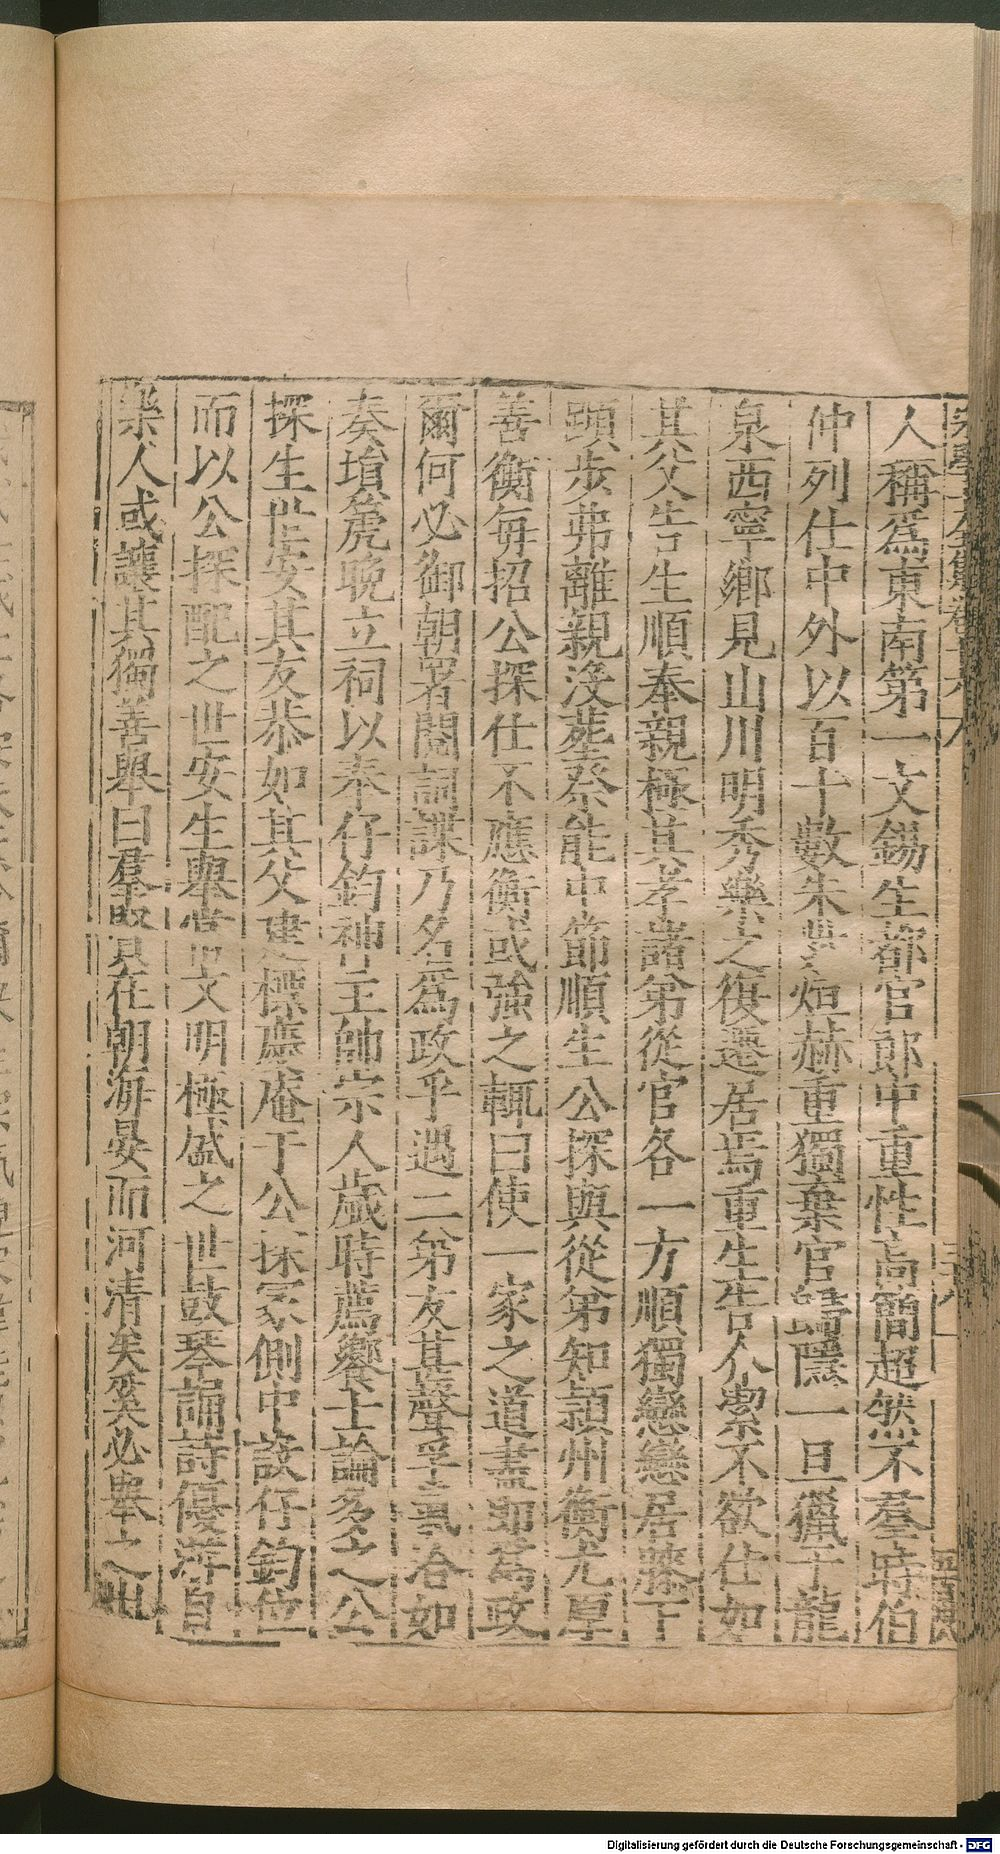 人稱爲東南第一文錫生都官郎中重性高簡超然不羣時伯
仲列仕中外以百十數朱紫烜赫重獨棄官歸隱一旦獵于龍
泉西寧鄉見山川明秀樂之復遷居焉重生告介潔不欲仕如
其父告生順奉親極其孝諸弟從官各一方順獨戀戀居膝下
頭步弗離親没塟祭能中節順生公探與從弟知頴州衡尤厚
善衡每招公探仕不應衡或強之輒曰使一家之道盡即爲政
爾何必御朝署閱詞諜乃名爲政乎遇二弟友甚聲孚氣合如
奏塤箎晚立祠以奉仔鈞神主帥宗人歲時薦饗士論多之公
探生世安其友恭如其父建標應庵于公探冢側中設仔鈞位
而以公探配之世安生舉當文明極盛之世鼓琴誦詩優游自
樂人或讓其獨善舉曰羣賢在朝海晏而河清矣奚必舉之出
Digitalisierung gefördert durch die Deutsche Forschungsgemeinschaft - DFG